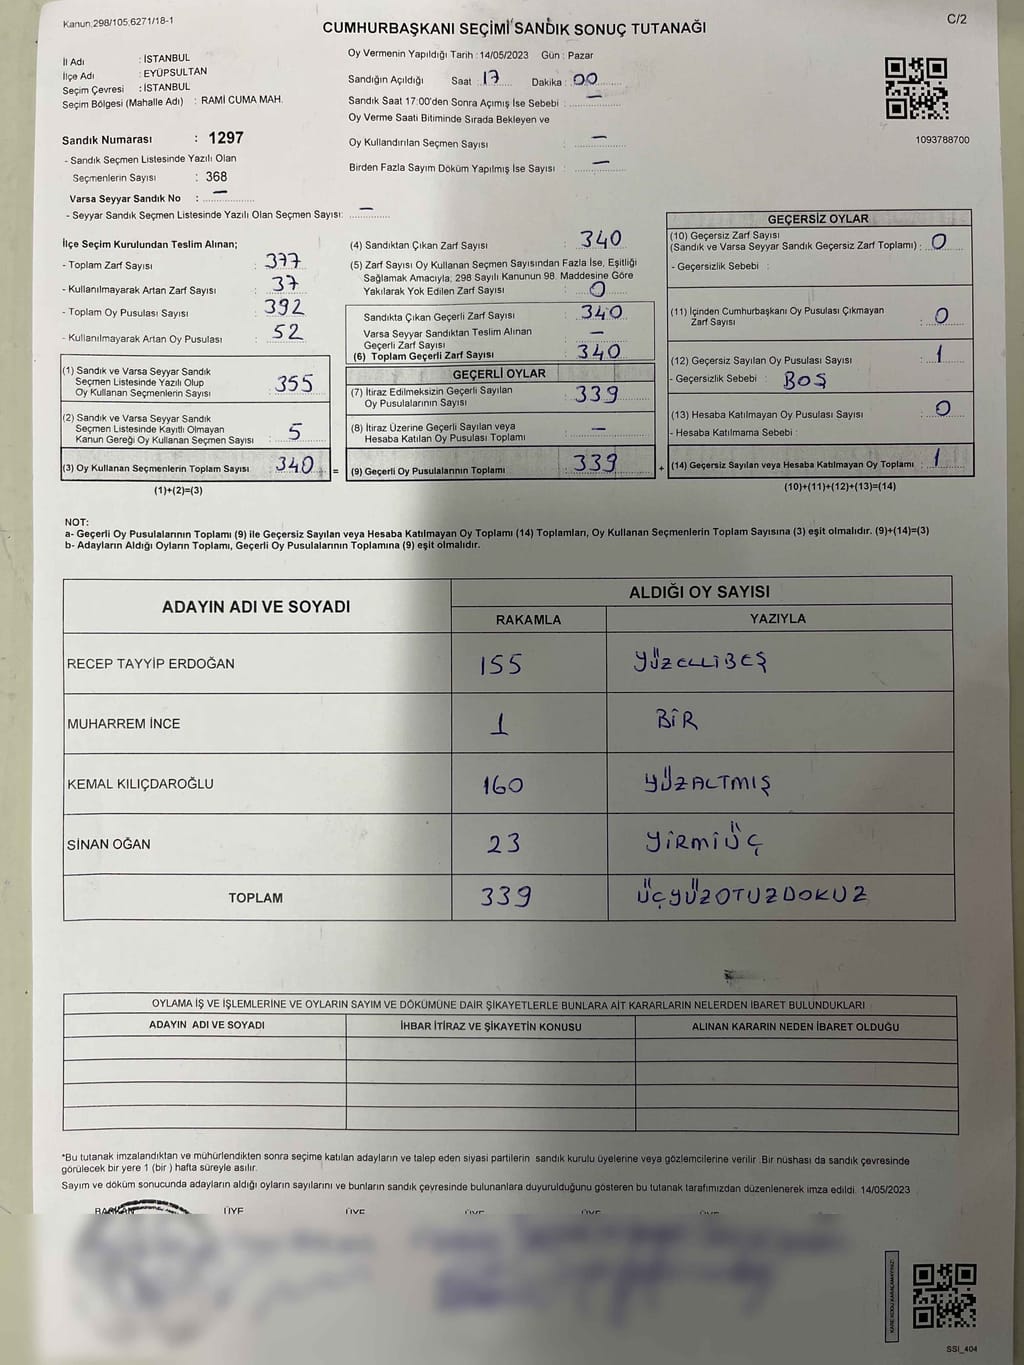 Kanun.298/105.6271/18-1
CUMHURBAŞKANI SEÇİMİ SANDIK SONUÇ TUTANAĞI
C/2
İl Adı : İSTANBUL
İlçe Adı : EYÜPSULTAN
Seçim Çevresi : İSTANBUL
Seçim Bölgesi (Mahalle Adı) : RAMİ CUMA MAH.
Sandık Numarası : 1297
- Sandık Seçmen Listesinde Yazılı Olan
Seçmenlerin Sayısı : 368
Varsa Seyyar Sandık No : —
- Seyyar Sandık Seçmen Listesinde Yazılı Olan Seçmen Sayısı: —
Oy Vermenin Yapıldığı Tarih : 14/05/2023 Gün : Pazar
Sandığın Açıldığı Saat : 17 Dakika : 00
Sandık Saat 17:00'den Sonra Açımış İse Sebebi : —
Oy Verme Saati Bitiminde Sırada Bekleyen ve
Oy Kullandırılan Seçmen Sayısı : —
Birden Fazla Sayım Döküm Yapılmış İse Sayısı : —
1093788700
İlçe Seçim Kurulundan Teslim Alınan;
- Toplam Zarf Sayısı : 377
- Kullanılmayarak Artan Zarf Sayısı : 37
- Toplam Oy Pusulası Sayısı : 392
- Kullanılmayarak Artan Oy Pusulası : 52
(1) Sandık ve Varsa Seyyar Sandık
Seçmen Listesinde Yazılı Olup
Oy Kullanan Seçmenlerin Sayısı : 355
(2) Sandık ve Varsa Seyyar Sandık
Seçmen Listesinde Kayıtlı Olmayan
Kanun Gereği Oy Kullanan Seçmen Sayısı : 5
(3) Oy Kullanan Seçmenlerin Toplam Sayısı : 340 =
(1)+(2)=(3)
(4) Sandıktan Çıkan Zarf Sayısı : 340
(5) Zarf Sayısı Oy Kullanan Seçmen Sayısından Fazla İse, Eşitliği
Sağlamak Amacıyla, 298 Sayılı Kanunun 98. Maddesine Göre
Yakılarak Yok Edilen Zarf Sayısı : 0
Sandıkta Çıkan Geçerli Zarf Sayısı : 340
Varsa Seyyar Sandıktan Teslim Alınan
Geçerli Zarf Sayısı : —
(6) Toplam Geçerli Zarf Sayısı : 340
GEÇERLİ OYLAR
(7) İtiraz Edilmeksizin Geçerli Sayılan
Oy Pusulalarının Sayısı : 339
(8) İtiraz Üzerine Geçerli Sayılan veya
Hesaba Katılan Oy Pusulası Toplamı : —
(9) Geçerli Oy Pusulalarının Toplamı : 339 +
GEÇERSİZ OYLAR
(10) Geçersiz Zarf Sayısı
(Sandık ve Varsa Seyyar Sandık Geçersiz Zarf Toplamı) : 0
- Geçersizlik Sebebi :
(11) İçinden Cumhurbaşkanı Oy Pusulası Çıkmayan
Zarf Sayısı : 0
(12) Geçersiz Sayılan Oy Pusulası Sayısı : 1
- Geçersizlik Sebebi : BOŞ
(13) Hesaba Katılmayan Oy Pusulası Sayısı : 0
- Hesaba Katılmama Sebebi :
(14) Geçersiz Sayılan veya Hesaba Katılmayan Oy Toplamı : 1
(10)+(11)+(12)+(13)=(14)
NOT:
a- Geçerli Oy Pusulalarının Toplamı (9) ile Geçersiz Sayılan veya Hesaba Katılmayan Oy Toplamı (14) Toplamları, Oy Kullanan Seçmenlerin Toplam Sayısına (3) eşit olmalıdır. (9)+(14)=(3)
b- Adayların Aldığı Oyların Toplamı, Geçerli Oy Pusulalarının Toplamına (9) eşit olmalıdır.
ADAYIN ADI VE SOYADI ALDIĞI OY SAYISI
RAKAMLA YAZIYLA
RECEP TAYYİP ERDOĞAN 155 YÜZELLİBEŞ
MUHARREM İNCE 1 BİR
KEMAL KILIÇDAROĞLU 160 YÜZALTMIŞ
SİNAN OĞAN 23 YİRMİÜÇ
TOPLAM 339 ÜÇYÜZOTUZDOKUZ
OYLAMA İŞ VE İŞLEMLERİNE VE OYLARIN SAYIM VE DÖKÜMÜNE DAİR ŞİKAYETLERLE BUNLARA AİT KARARLARIN NELERDEN İBARET BULUNDUKLARI
ADAYIN ADI VE SOYADI İHBAR İTİRAZ VE ŞİKAYETİN KONUSU ALINAN KARARIN NEDEN İBARET OLDUĞU
*Bu tutanak imzalandıktan ve mühürlendikten sonra seçime katılan adayların ve talep eden siyasi partilerin sandık kurulu üyelerine veya gözlemcilerine verilir .Bir nüshası da sandık çevresinde
görülecek bir yere 1 (bir ) hafta süreyle asılır.
Sayım ve döküm sonucunda adayların aldığı oyların sayılarını ve bunların sandık çevresinde bulunanlara duyurulduğunu gösteren bu tutanak tarafımızdan düzenlenerek imza edildi. 14/05/2023
BAŞKAN ÜYE ÜYE ÜYE ÜYE ÜYE
SSI_404